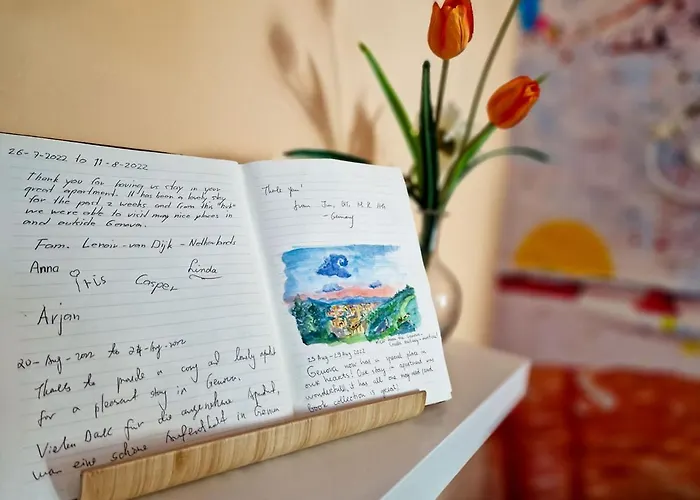 26-7-2022 to 11-8-2022
Thank you for having us stay in your
great apartment. It has been a lovely stay
for the past 2 weeks and from this
we were able to visit many nice places in
and outside Genova.
Fam. Lenoir-van Dijk - Netherlands
Anna Iris Casper Linda
Arjan
20-Aug-2022 to 24-Aug-2022
Thanks to provide a cosy and lovely
for a pleasant stay in Genova.
Vielen Dank für die angenehme
war eine schöne Aufenthalt in Genua
Thank you!
from
- Germany
25 Aug - 29 Aug 2022
Genova now has a special place in
our hearts! Our stay in apartment was
wonderful, it has all one may need (and
book collection is great)